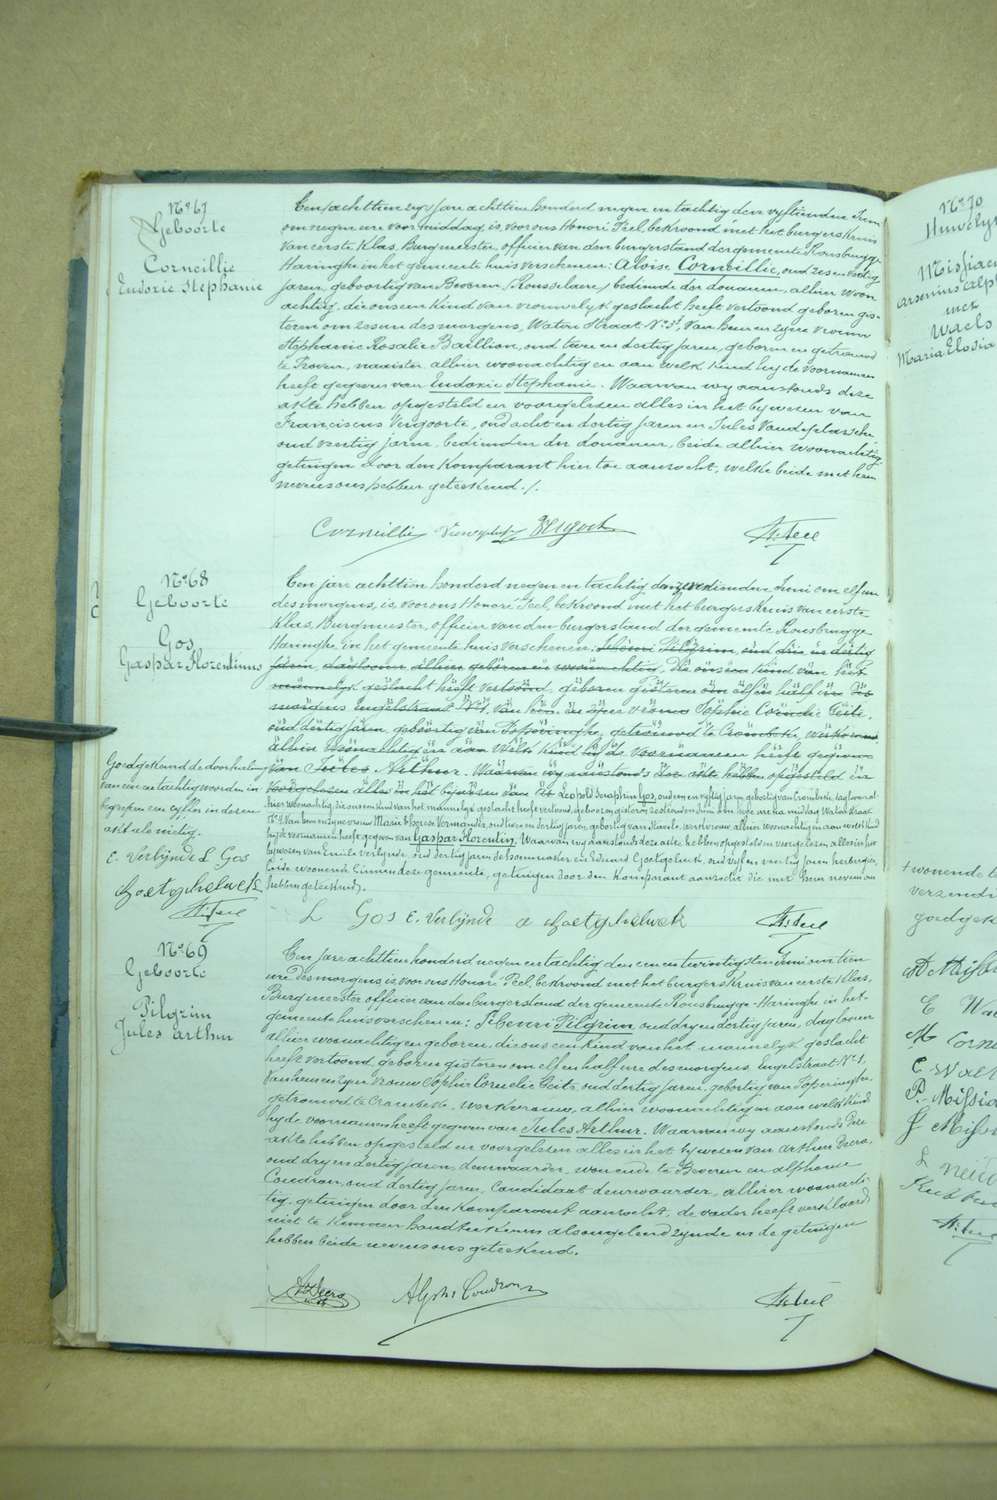 N° 67
Geboorte
Corneillie
Eudoxie Stephanie
Een jare achttien honderd negen en tachtig den vyftienden Juni
om negen ure voormiddag, is voor ons Honoré Feel bekroond met het burgerskruis
van eerste Klas, Burgmeester, officier van den burgerstand der gemeente Rousbrugge
Haringhe in het gemeente huis verschenen: Aloïse Corneillie, oud zes en
jaren, geboortig van Beveren (Rousselaere) bediende der douanen, alhier woon
achtig, die ons een kind van vrouwelyk geslacht heeft vertoond geboren gis-
teren om des morgens, Waten straat N° 5, van hem en zyne vrouw
Stephanie Rosalie Baillion, oud twee en dertig jaren, geboren en getrouwd
te Proven, naaister alhier woonachtig en aan welk kind hy de voornamen
heeft gegeven van Eudoxie Stephanie. Waarvan wy aanstonds deze
akte hebben opgesteld en voorgelezen alles in het bywezen van
Franciscus Vergoote, oud acht en dertig jaren en Jules Vandeplassche
oud veertig jaren, bedienden der douanen, beide alhier woonachtig,
getuigen door den Komparant hier toe aanzocht, welke beide met hem
nevens ons hebben geteekend./.
Corneillie Vergoote H. Feel
N° 68
Geboorte
Gos
Gaspar Florentinus
Een jare achttien honderd negen en tachtig den Juni om elf ure
des morgens, is voor ons Honoré Feel, bekroond met het burgerskruis van eerste
Klas, Burgmeester, officier van den burgerstand der gemeente Rousbrugge
Haringhe in het gemeente huis verschenen: Pilgrim, oud drie en dertig
jaren, dagloner alhier geboren en woonachtig. Die ons een kind van het
mannelyk geslacht heeft vertoond, geboren gisteren om elf en half ure des
morgens Engelstraat N° 1, van hem en zyne vrouw Sophie Cornelie Feits,
oud dertig jaren, geboortig van Poperinghe, getrouwd te Crombeke, werkvrouw
alhier woonachtig en aan welk kind hy de voornamen heeft gegeven
van Jules Arthur. Waarvan wy aanstonds deze akte hebben opgesteld en
voorgelezen alles in het bywezen van Leopold Seraphin Gos, oud een en vyftig jaren geboortig van Crombeke, daglooner al
hier woonachtig die ons een kind van het mannelyk geslacht heeft vertoond, geboren gisteren zestienden Juni om half ure na middag Waten straat
van hem en zyne vrouw Marie Louise Vermander, oud drie en dertig jaren, geboortig van Stavele, werkvrouw alhier woonachtig en aan welk kind
hy de voornamen heeft gegeven van Gaspar Florentin. Waarvan wy aanstonds deze akte hebben opgesteld en voorgelezen alles in het
bywezen van Emile Verbynde, oud dertig jaren en Eduard Goetgheluck, oud vyf en veertig jaren herbergier,
beide wonende binnen deze gemeente, getuigen door den Komparant aanzocht die met hem nevens ons
hebben geteekend.
Goedgekeurd de doorhaling
van een en tachtig woorden in
begrepen een cyffer in dezen
akt als nietig.
E. Verbÿnde L Gos
Goetgheluck
H. Feel
L Gos E. Verbÿnde Goetgheluck H. Feel
N° 69
Geboorte
Pilgrim
Jules Arthur
Een jare achttien honderd negen en tachtig den een en twintigsten Juni om tien
ure des morgens is voor ons Honoré Feel, bekroond met het burgerskruis van eerste Klas,
Burgmeester officier van den burgerstand der gemeente Rousbrugge-Haringhe in het
gemeente huis verschenen: Pilgrim, oud dry en dertig jaren, daglooner
alhier woonachtig en geboren, die ons een kind van het mannelyk geslacht
heeft vertoond, geboren gisteren om elf en half ure des morgens, Engelstraat N° 1,
van hem en zyne vrouw Sophie Cornelie Feits, oud dertig jaren, geboortig van Poperinghe,
getrouwd te Crombeke, werkvrouw, alhier woonachtig en aan welk kind
hy de voornamen heeft gegeven van Jules Arthur. Waarvan wy aanstonds deze
akte hebben opgesteld en voorgelezen alles in het bywezen van Arthur Deero,
oud dry en dertig jaren, deurwaarder, wonende te Beveren en Alphonse
Coudron, oud dertig jaren, candidaat deurwaarder, alhier woonach-
tig, getuigen door den Komparant aanzocht, de vader heeft verklaard
niet te kunnen handteekenen als ongeleerd zynde en de getuigen
hebben beide nevens ons geteekend.
Alph. Coudron H. Feel
N° 70
Huwelyk
Missiaen
Arsenius Alph
met
Waels
Maria Elosia
verzend
goedgek
Missi
E Wa
M Corne
P. Missia
Missi
H. Feel